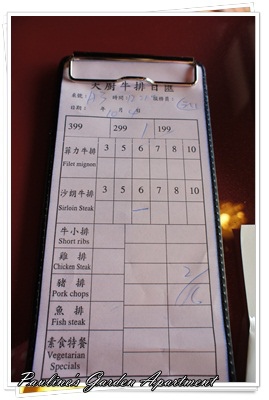 大廚牛排日匯
桌號： 時間： 服務員：
日期： 年 月 日
399 299 1 199
菲力牛排 3 5 6 7 8 10
Filet mignon
沙朗牛排 3 5 6 7 8 10
Sirloin Steak
牛小排
Short ribs
雞排
Chicken Steak
豬排
Pork chops
魚排
Fish steak
素食特餐
Vegetarian
Specials
Pauline's Garden Apartment